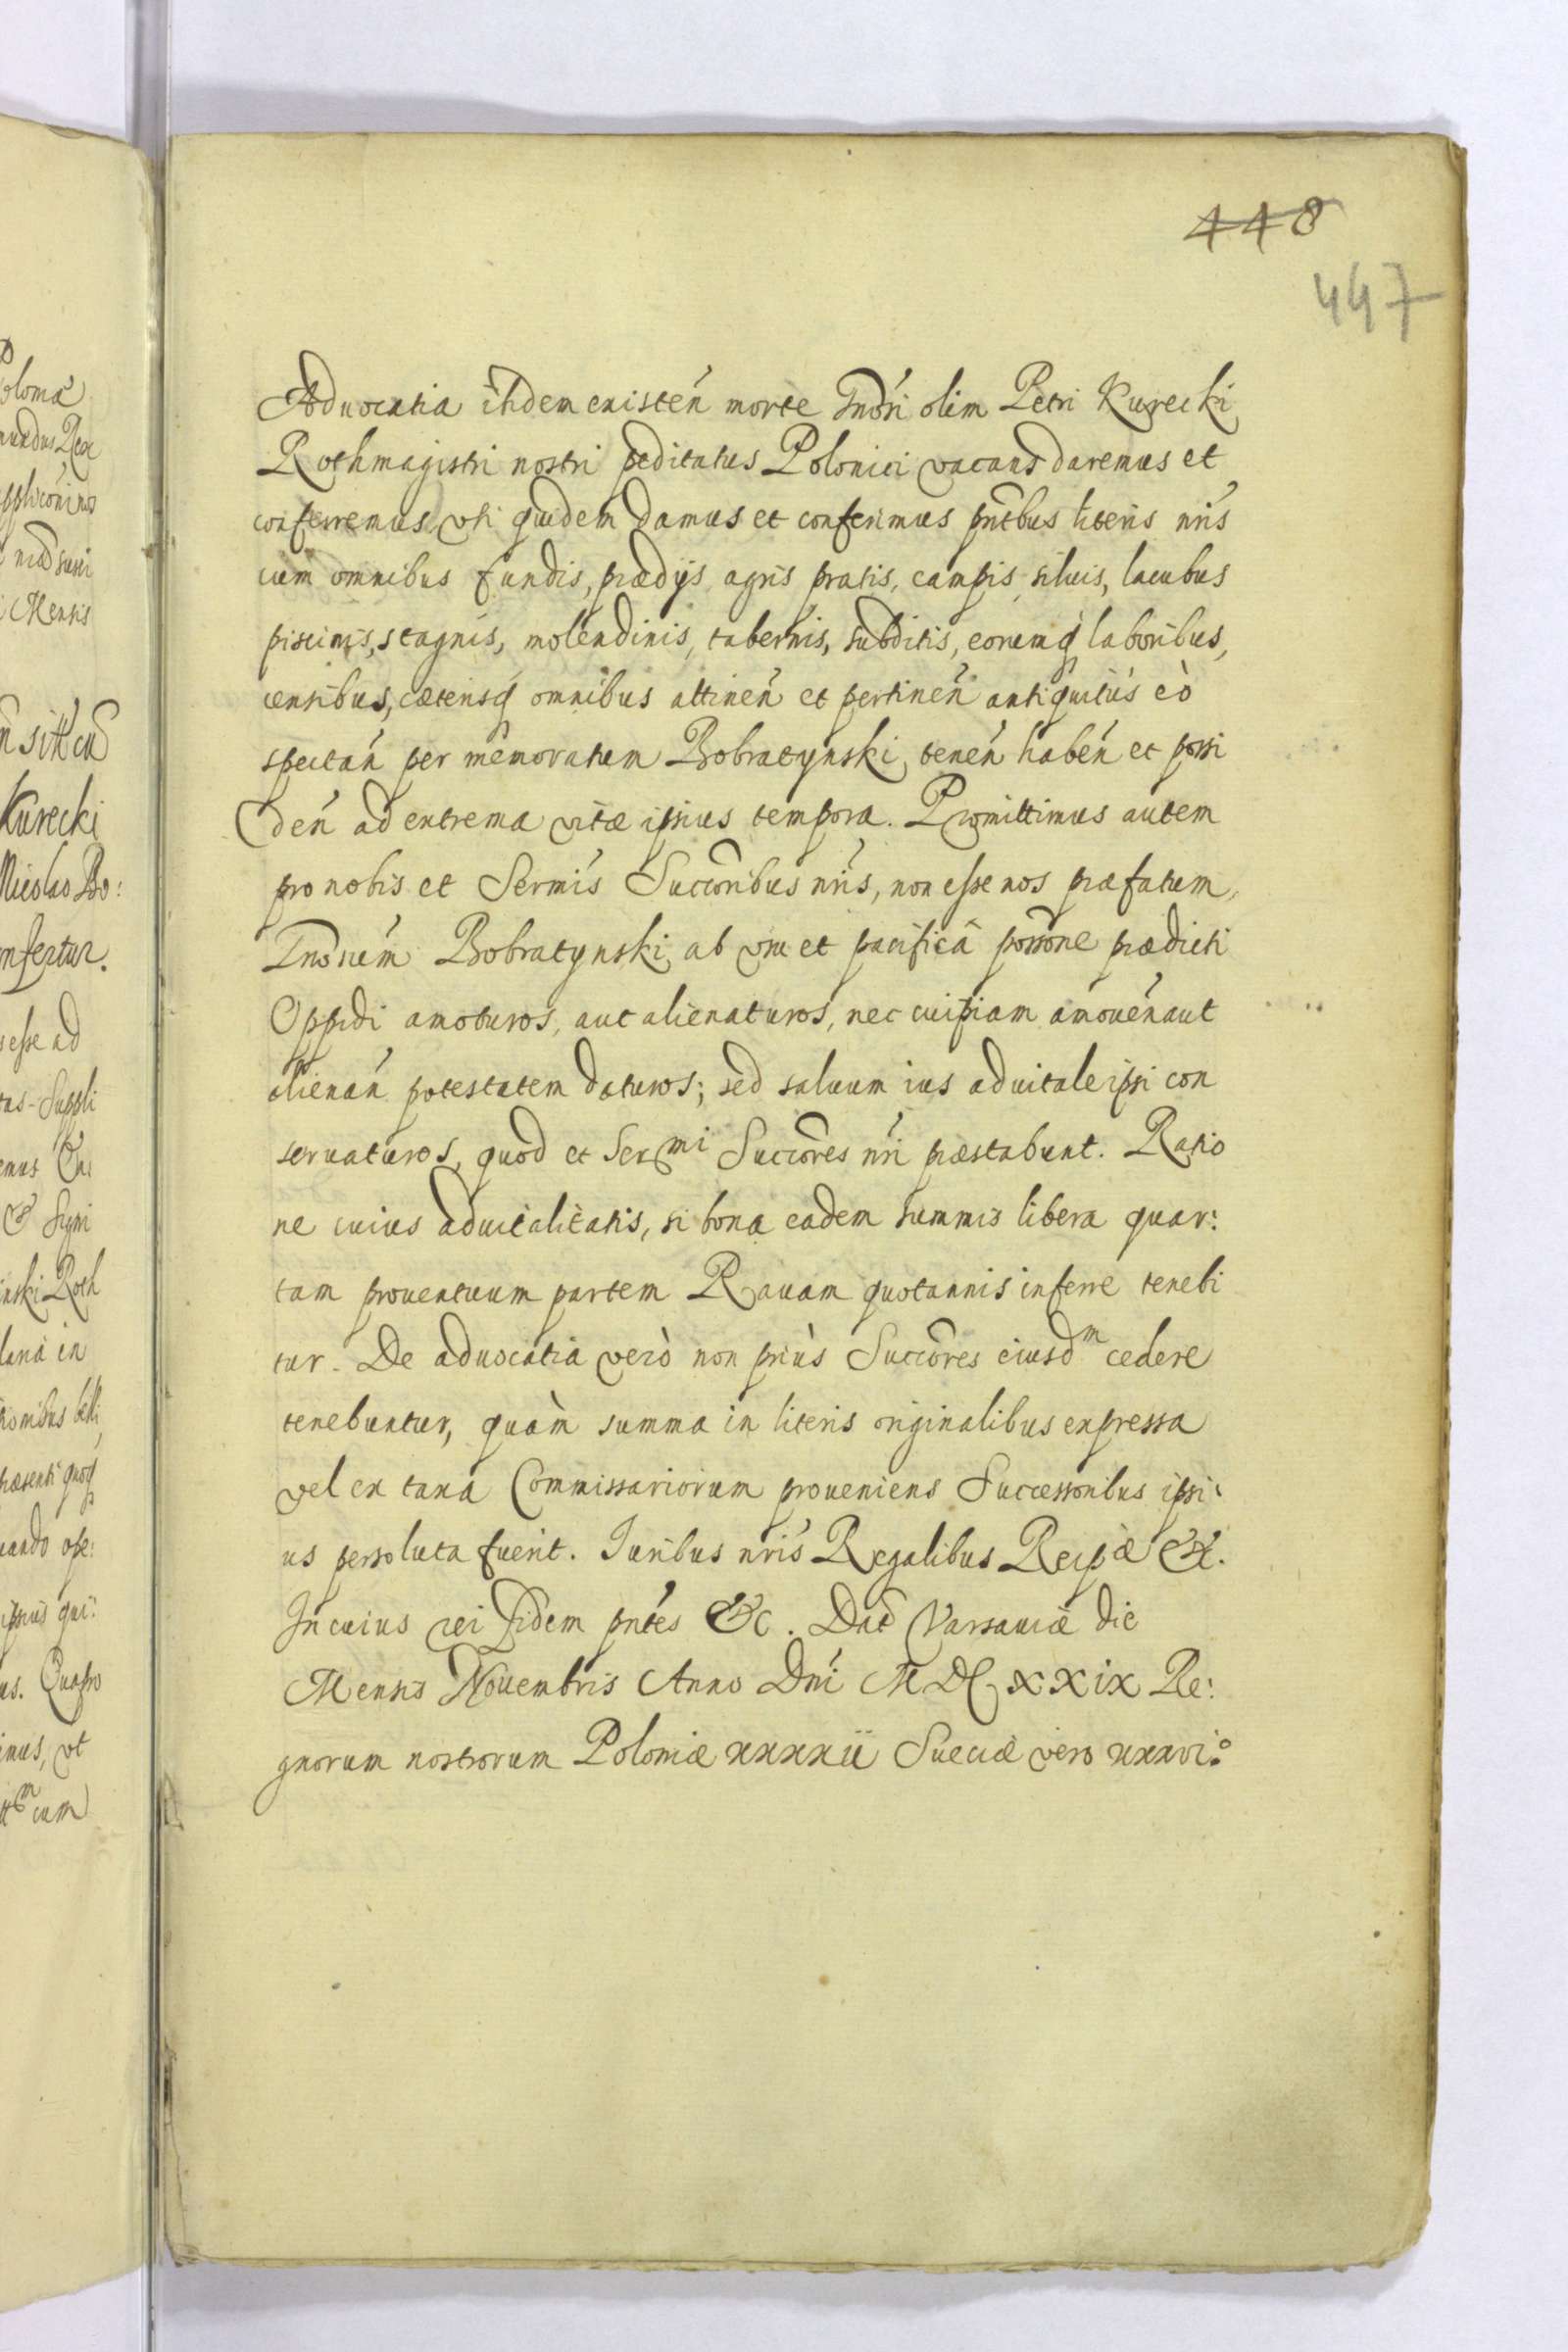 448
447
Aduocatia ibidem existeń morte Gnosi olim Petri Kurecki
Rothmagistri nostri peditatus Polonici vacans daremus et
conferremus, vti quidem damus et conferimus pñtbus literis nris
cum omnibus fundis, prædijs agris pratis, campis siluis, lacubus
piscinis, stagnis, molendinis, tabernis, subditis, eorumq laboribus,
censibus, cæterisq omnibus attineń et pertineń antiquitùs eò
spectań per memoratum Bobratynski, teneń habeń et possi
deń ad extrema vitæ ipsius tempora. Promittimus autem
pro nobis et Sermis Succoribus nris, non esse nos præfatum,
Gnosum Bobratynski ab vsu et pacificâ possone prædicti
Oppidi amoturos, aut alienaturos, nec cuipiam amoueń aut
alienań potestatem daturos; sed saluum ius aduitale ipsi con
seruaturos, quod et Sermi Succores nri præstabunt. Ratio
ne cuius aduitalitatis, si bona eadem summis libera quar:
tam prouentuum partem Rauam quotannis inferre tenebi
tur. De aduocatia verò non priùs Succores eiusdm cedere
tenebuntur, quàm summa in literis originalibus expressa
vel ex taxa Commissariorum proueniens Successoribus ipsi:
us persoluta fuerit. Iuribus nris Regalibus Reipæ &c.
In cuius rei fidem pntes &c. Dat Varsauiæ die
Mensis Nouembris Anno Dni MDCXXIX Re:
gnorum nostrorum Poloniæ xxxxii Sueciæ vero xxxvi.o
oloma
undus Rex
Mensis
Kurecki
Nicolao Bo:
nfertur.
esse ad
Suppli
inski Roth
lana in
ionibus belli,
præsenti quoq
ando ope:
ipsius qui:
us. Quapro
imus, vt
cum